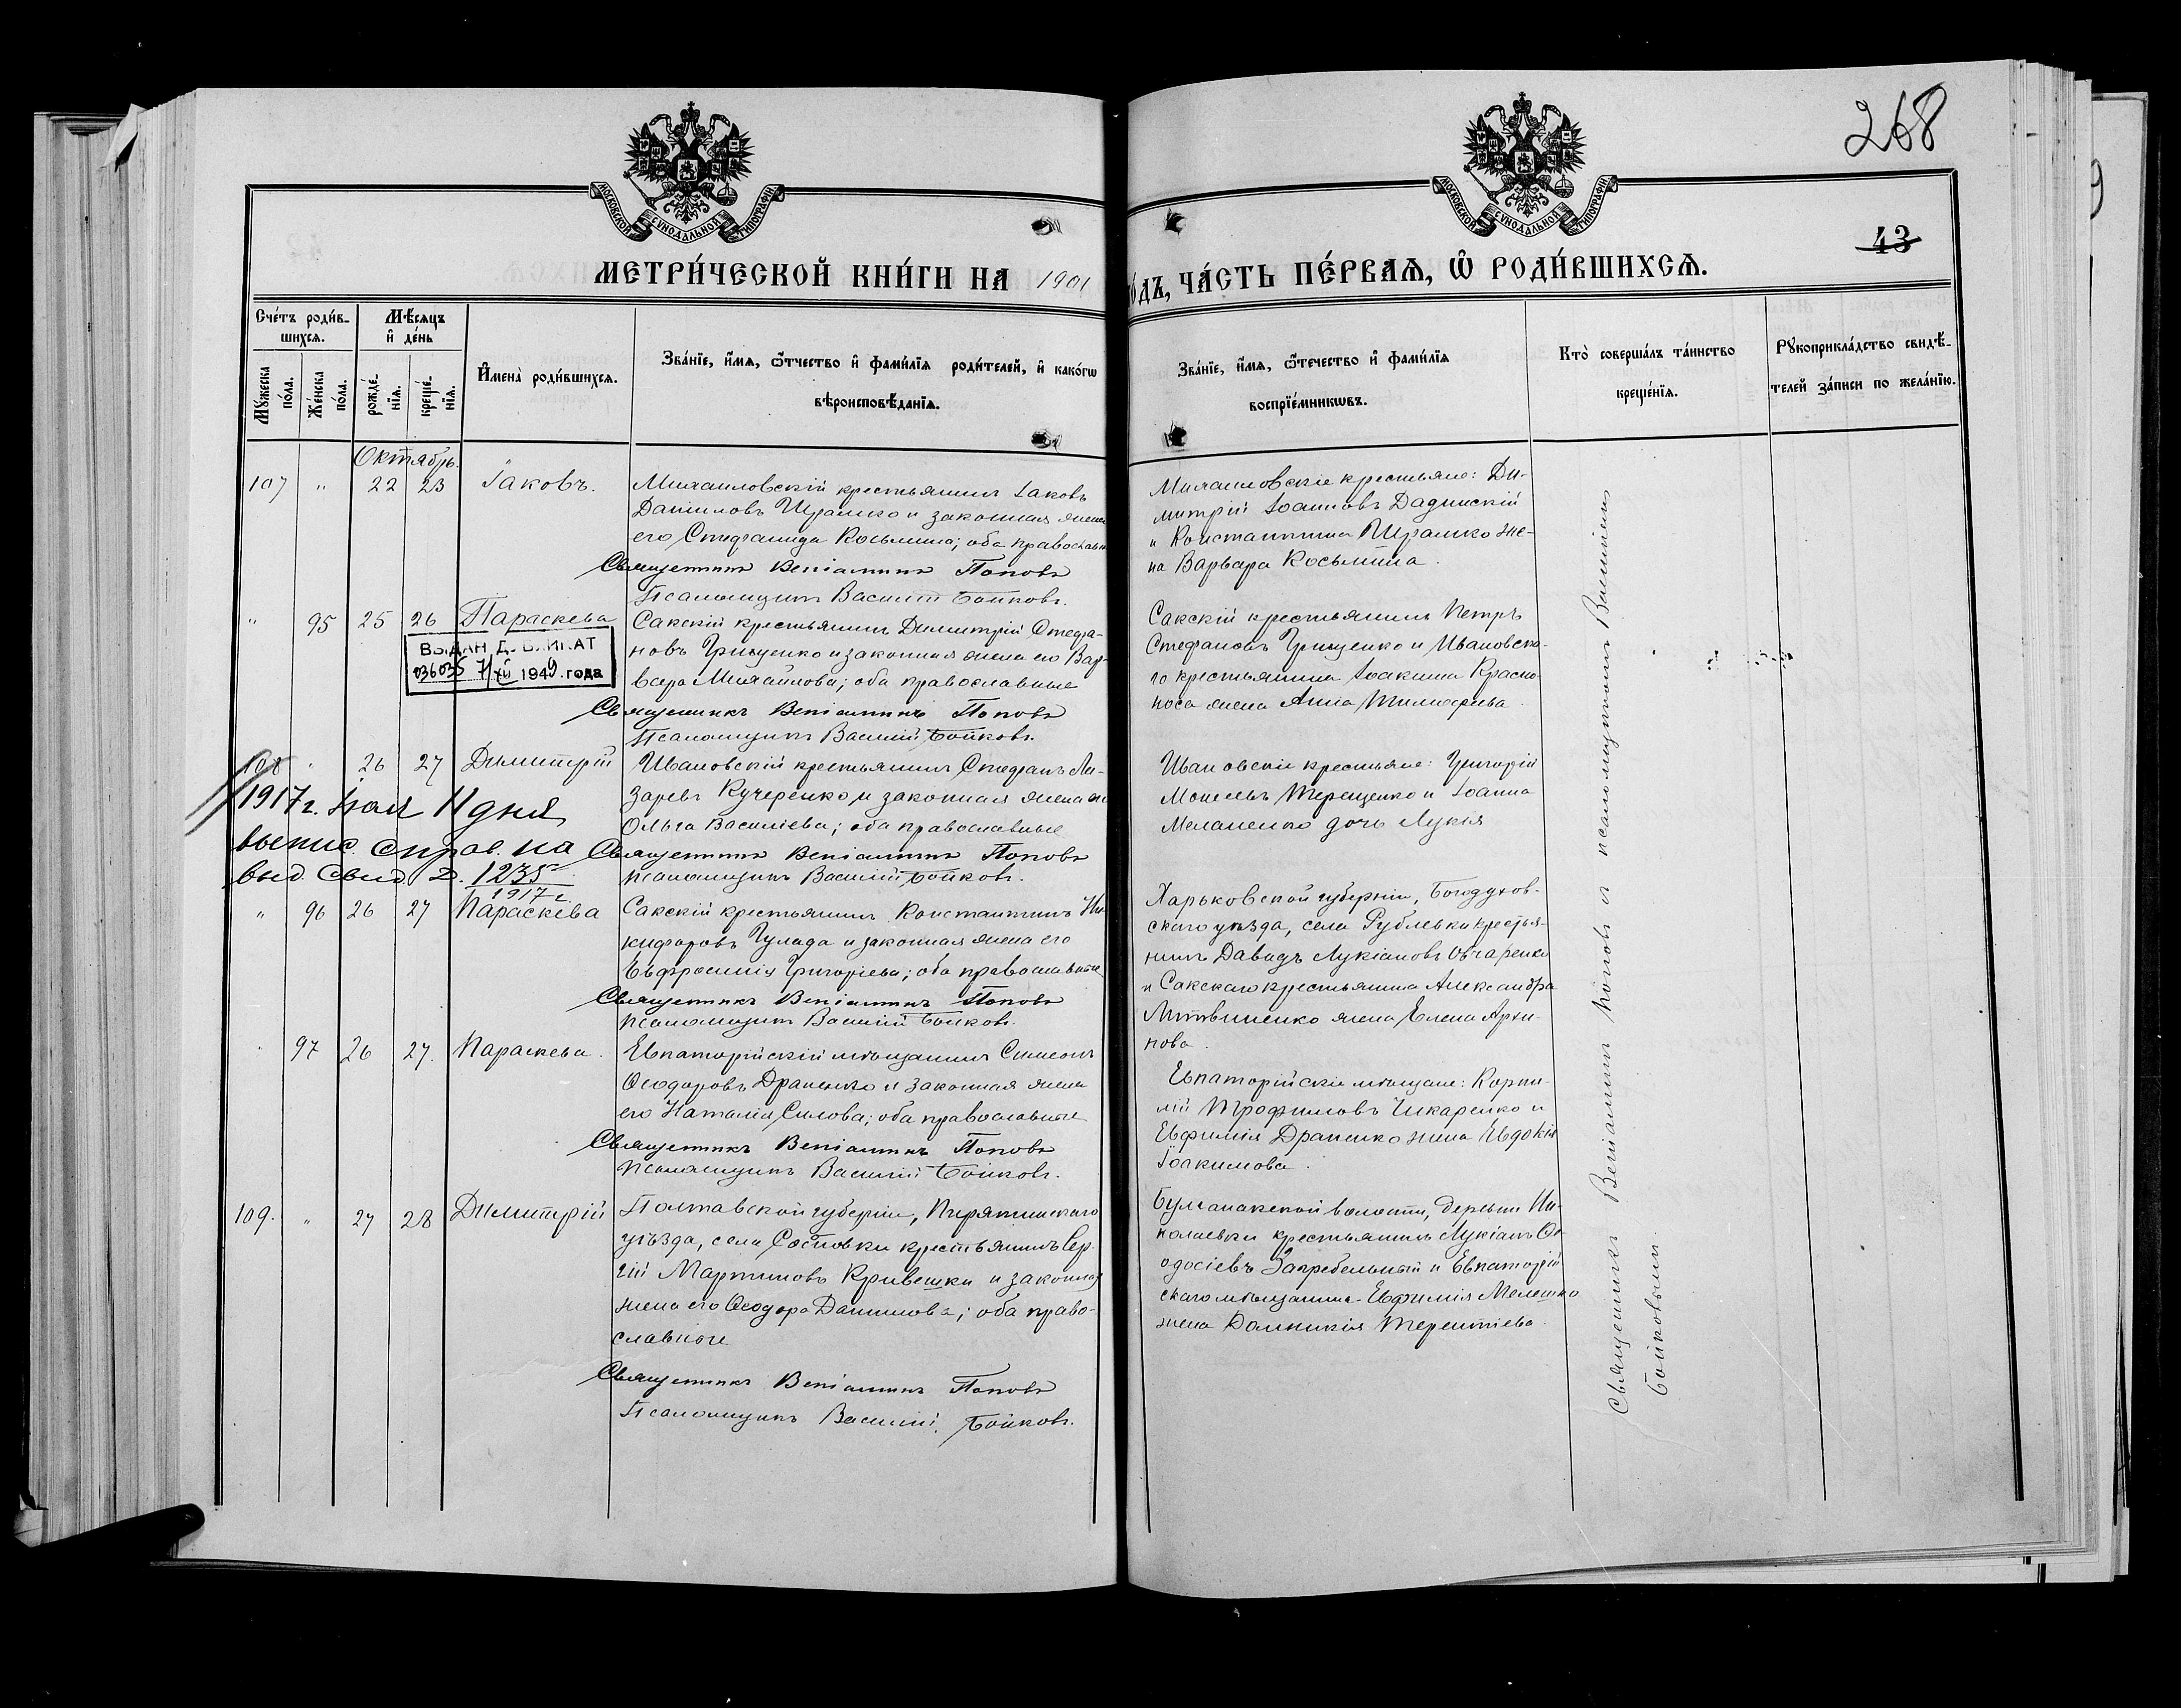 268
МОСКОВСКОЙ СѴНОДАЛЬНОЙ ТИПОГРАФІИ
МОСКОВСКОЙ СѴНОДАЛЬНОЙ ТИПОГРАФІИ
43
МЕТРИ́ЧЕСКОЙ КНИ́ГИ НА 1901
ОДЪ, ЧА́СТЬ ПЕ́РВАѦ, Ѽ РОДИ́ВШИХСѦ.
Сче́тъ роди́в-
шихсѧ.
Мꙋ́жеска
по́ла.
Же́нска
по́ла.
Мѣ́сѧцъ
и҆ де́нь
рожде́-
нїѧ.
креще́-
нїѧ.
И҆мена̀ роди́вшихсѧ.
Зва́нїе, и҆́мѧ, ѻ҆́тчество и҆ фами́лїѧ роди́телей, и҆ како́гѡ
вѣроисповѣ́данїѧ.
Зва́нїе, и҆́мѧ, ѻ҆́течество и҆ фами́лїѧ
воспрїе́мникѡвъ.
Кто̀ соверша́лъ та́инство
креще́нїѧ.
Рꙋкоприкла́дство свидѣ́-
телей за́писи по жела́нїю.
Октябрь.
107 " 22 23 Іаковъ.
Михаиловскій крестьянинъ Іаковъ
Даниловъ Шрамко и законная жена
его Стефанида Косьмина; оба православн
Священникъ Веніаминъ Поповъ
Псаломщикъ Василій Бойковъ.
Михаиловскіе крестьяне: Ди-
митрій Іоанновъ Дадинскій
и Константина Шрамко же-
на Варвара Косьмина.
" 95 25 26 Параскева
ВЫДАН ДУБЛИКАТ
036035 7/XII 1949. года
Сакскій крестьянинъ Димитрій Стефа-
новъ Грищенко и законная жена его Вар-
вара Михайлова; оба православные
Священникъ Веніаминъ Поповъ
Псаломщикъ Василій Бойковъ.
Сакскій крестьянинъ Петръ
Стефановъ Грищенко и Ивановска-
го крестьянина Іоакима Красно
носа жена Анна Тимофеева.
108 " 26 27 Димитрій
1917 г. Мая 11 дня
выпис. справ. на
выд. свид. 1235
1917 г.
Ивановскій крестьянинъ Стефанъ Ла-
заревъ Кучеренко и законная жена его
Ольга Василіева; оба православные
Священникъ Веніаминъ Поповъ
Псаломщикъ Василій Бойковъ.
Ивановскіе крестьяне: Григорій
Моисеевъ Терещенко и Іоанна
Меланенко дочь Лукія
" 96 26 27 Параскева
Сакскій крестьянинъ Константинъ Ни
кифоровъ Гулада и законная жена его
Евфросинія Григоріева; оба православные
Священникъ Веніаминъ Поповъ
Псаломщикъ Василій Бойковъ.
Харьковской губерніи, Богодухов-
скаго уѣзда, села Рублевки крестья-
нинъ Давидъ Лукіановъ Овчаренко
и Сакскаго крестьянина Александра
Литвиненко жена Елена Архи-
пова.
" 97 26 27. Параскева.
Евпаторійскій мѣщанинъ Симеонъ
Ѳеодоровъ Драненко и законная жена
его Наталія Силова; оба православные
Священникъ Веніаминъ Поповъ
Псаломщикъ Василій Бойковъ.
Евпаторійскіе мѣщане: Корни-
лій Трофимовъ Шкаренко и
Евфимія Драненко жена Евдокія
Іоакимова.
109. " 27 28 Димитрій
Полтавской губерніи, Пирятинскаго
уѣзда, села Сасиновки крестьянинъ Сер-
гій Мартиновъ Кривешки и законная
жена его Ѳеодора Данилова; оба право-
славные
Священникъ Веніаминъ Поповъ
Псаломщикъ Василій Бойковъ.
Булганакской волости, деревни Ни-
колаевки крестьянинъ Лукіанъ Ѳе-
одосіевъ Загребельный и Евпаторій
скаго мѣщанина Евфимія Мелешко
жена Домникія Терентіева.
Священникъ Веніаминъ Поповъ и псаломщикомъ Василіемъ
Бойковымъ.